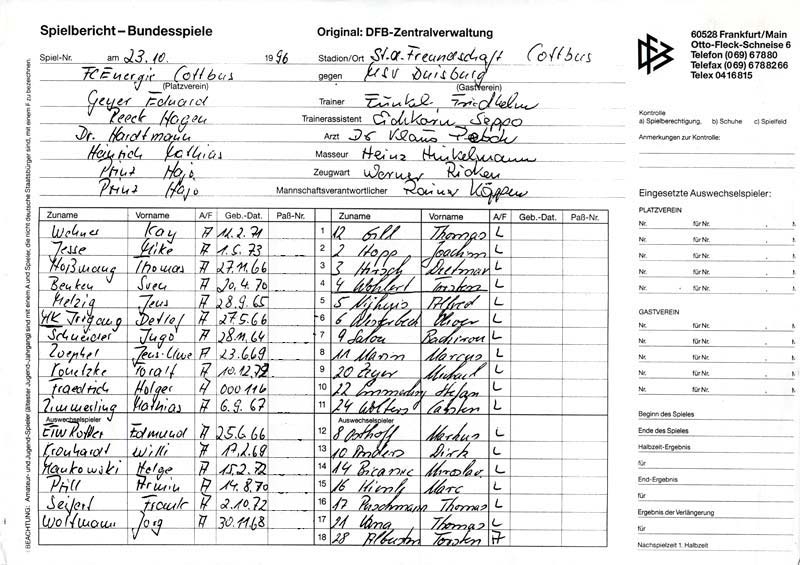 Spielbericht – Bundesspiele
Original: DFB-Zentralverwaltung
60528 Frankfurt/Main
Otto-Fleck-Schneise 6
Telefon (069) 67880
Telefax (069) 6788266
Telex 0416815
Spiel-Nr. am 23.10. 1996 Stadion/Ort St.d.Freundschaft Cottbus
FC Energie Cottbus gegen MSV Duisburg
(Platzverein) (Gastverein)
Geyer Eduard Trainer Funkel, Friedhelm
Reeck Hagen Trainerassistent Eichkorn Seppo
Dr. Hardtmann Arzt Dr Klaus
Heinrich Mathias Masseur Heinz
Prinz Hajo Zeugwart Werner Ricken
Prinz Hajo Mannschaftsverantwortlicher Rainer Köppen
Kontrolle
a) Spielberechtigung, b) Schuhe c) Spielfeld
Anmerkungen zur Kontrolle:
Eingesetzte Auswechselspieler:
PLATZVEREIN
Nr. für Nr.
Nr. für Nr.
Nr. für Nr.
Nr. für Nr.
Nr. für Nr.
GASTVEREIN
Nr. für Nr.
Nr. für Nr.
Nr. für Nr.
Nr. für Nr.
Nr. für Nr.
Beginn des Spieles
Ende des Spieles
Halbzeit-Ergebnis
für
End-Ergebnis
für
Ergebnis der Verlängerung
für
Nachspielzeit 1. Halbzeit
Zuname Vorname A/F Geb.-Dat. Paß-Nr. Zuname Vorname A/F Geb.-Dat. Paß-Nr.
Wehner Kay A 11.2.71 1 12 Gill Thomas L
Jesse Mike A 1.5.73 2 2 Hopp Joachim L
Hoßmang Thomas A 27.11.66 3 3 Hirsch Dietmar L
Benken Sven A 20.4.70 4 4 Wohlert Torsten L
Melzig Jens A 28.9.65 5 5 Nijhuis Alfred L
MK Irrgang Detlef A 27.5.66 6 6 L
Schneider Ingo A 28.11.64 7 9 Salou Bachirou L
Zoephel Jens-Uwe A 23.6.69 8 11 Marin Marcus L
Konetzke Toralf A 10.12.72 9 20 Zeyer Michael L
Fraedrich Holger A 10 22 Emmerling Stefan L
Zimmerling Mathias A 6.9.67 11 24 Wolters Carsten L
Auswechselspieler Auswechselspieler
ETW Edmund A 25.6.66 12 8 Osthoff Markus L
Kronhardt Willi A 17.2.69 13 10 Anders Dirk L
Mankowski Helge A 15.2.72 14 14 Bicanic Miroslav L
Pfill Armin A 14.8.70 15 16 Hientz Marc L
Seifert Frank A 2.10.72 16 17 Puschmann Thomas L
Woltmann Jörg A 30.11.68 17 21 Vana Thomas L
18 28 Albustin Torsten A
BEACHTUNG: Amateur- und Jugend-Spieler (ältester Jugend-Jahrgang) sind mit einem A und Spieler, die nicht deutsche Staatsbürger sind, mit einem F zu bezeichnen.